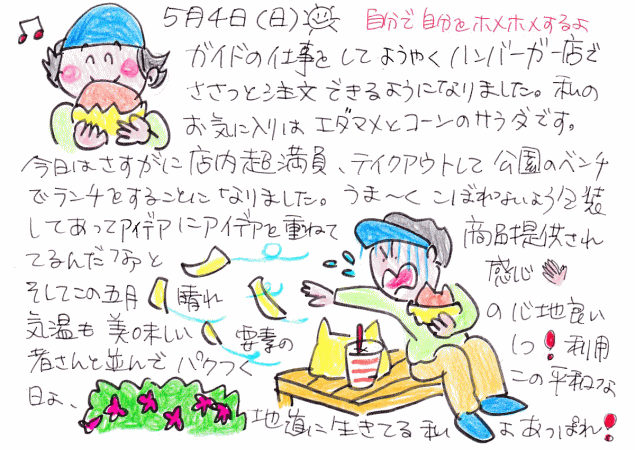 5月4日(日)
自分で自分をホメホメするよ
ガイドの仕事をしてようやくハンバーガー店で
ささっと注文できるようになりました。私の
お気に入りはエダマメとコーンのサラダです。
今日はさすがに店内超満員、テイクアウトして公園のベンチ
でランチをすることになりました。うま〜くこぼれないよう包装
してあってアイデアにアイデアを重ねて商品提供され
てるんだなあと感心
そしてこの五月晴れの心地良い
気温も美味しい要素の1つ!利用
者さんと並んでパクつくこの平和な
日よ、地道に生きてる私よあっぱれ!